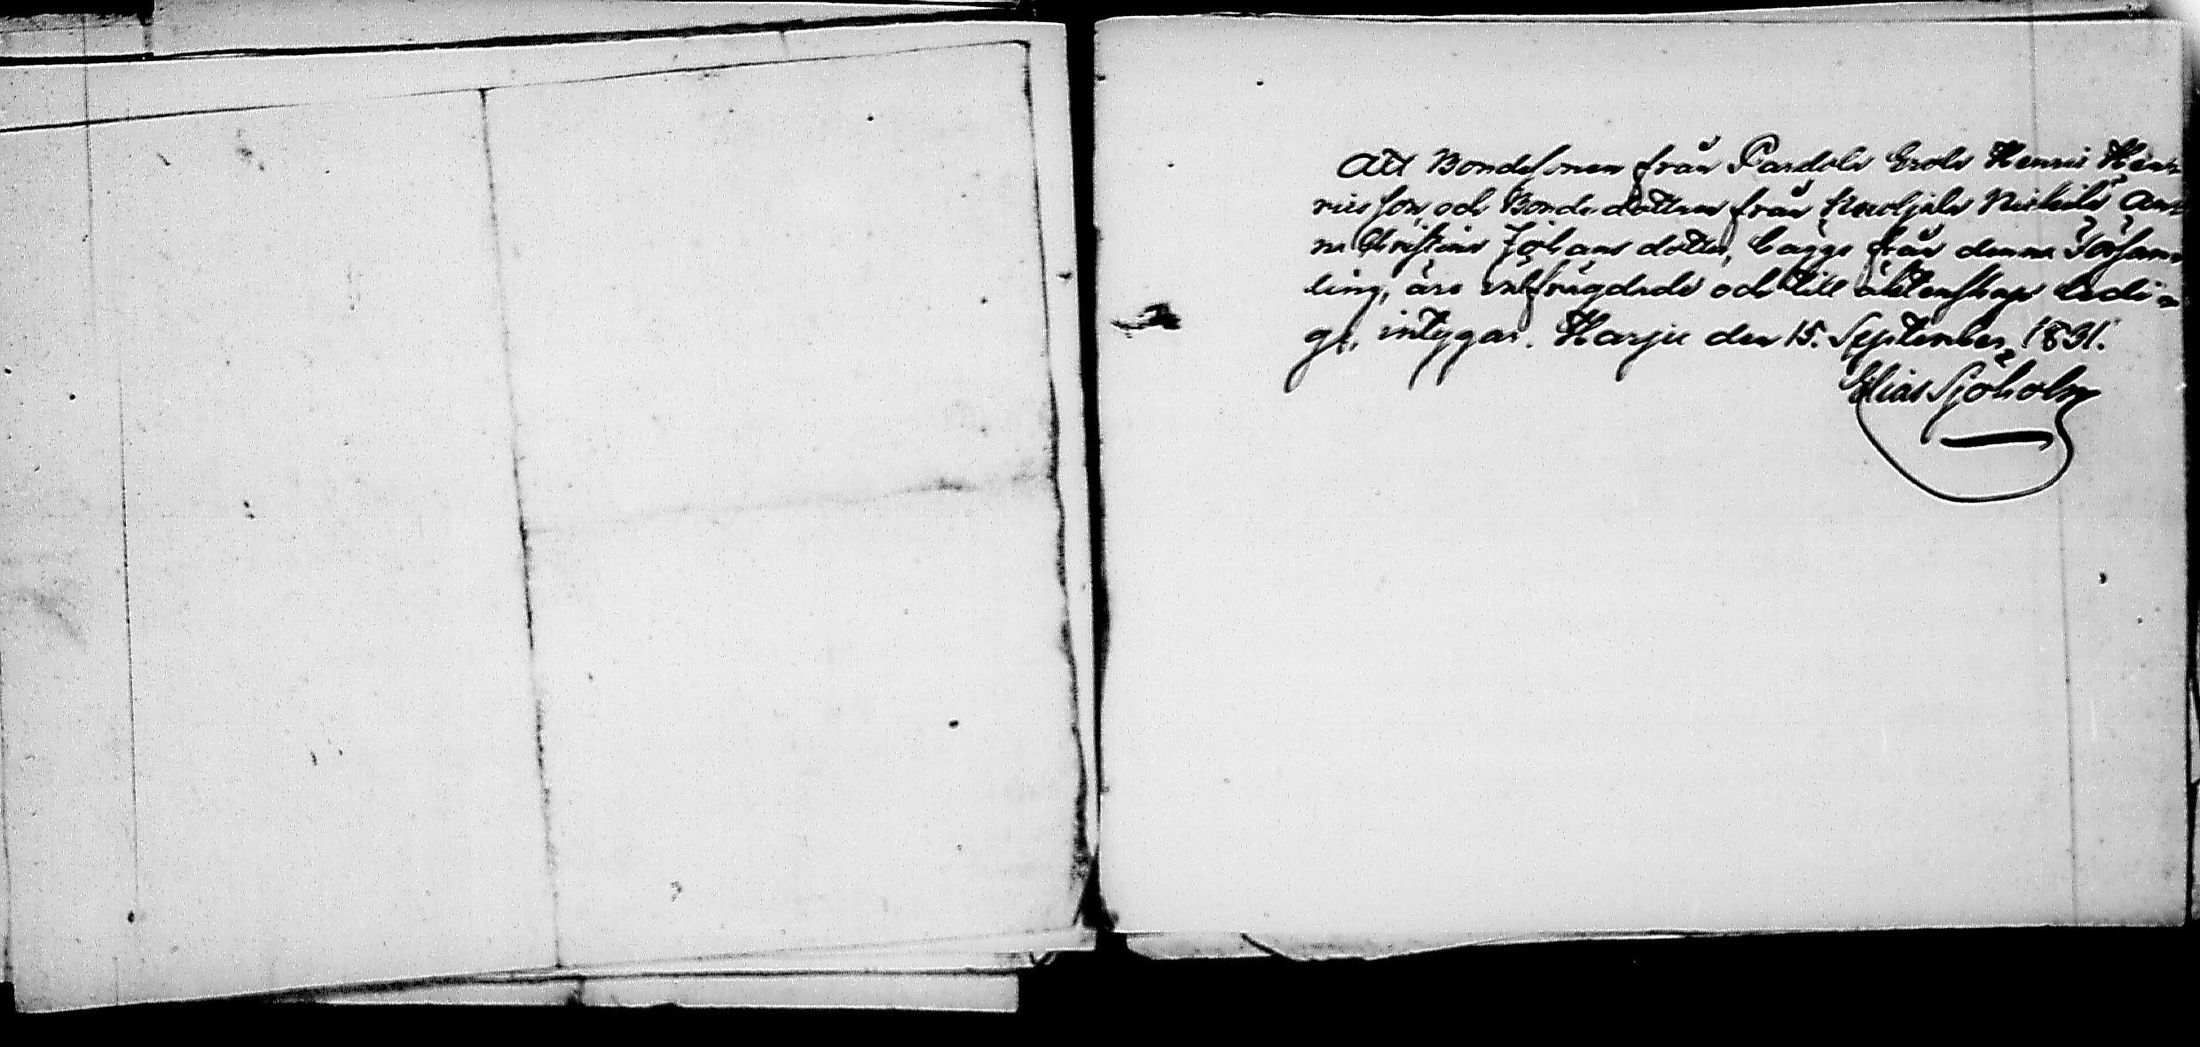 Att Bondesonen från Pardola Erola Henric Hen-
ricsson, och Bondedottren från Nickilä An-
na Christina Johans dotter, bägge från denna Församm
ling, äro välfrägdade och till äktenskap ledi-
ge, intygar. Harju den 15. September 1831.
Elias Sjöholm